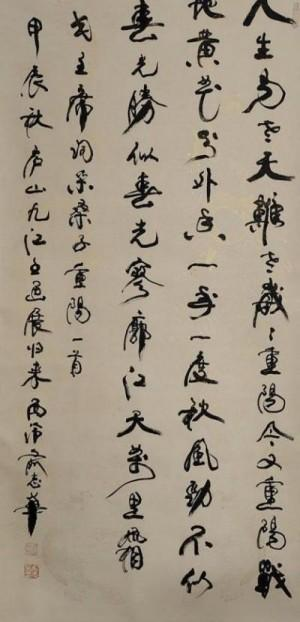 人生易老天難老歲〻重陽今又重陽戰
地黄花分外香一年一度秋風勁不似
春光勝似春光寥廓江天萬里霜
毛主席词采桑子重陽一首
甲辰秋庐山九江展归来俞志華